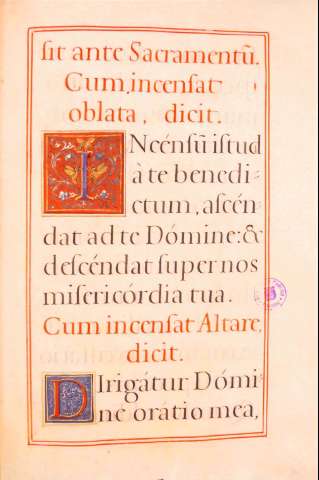 ſit ante Sacramentū.
Cum incenſat
oblata, dicit.
INcénſū iſtud
à te benedi=
ctum, aſcén
dat ad te Dómine: &
deſcéndat ſuper nos
miſericórdia tua.
Cum incenſat Altare,
dicit.
Dirigátur Dómi=
ne orátio mea,